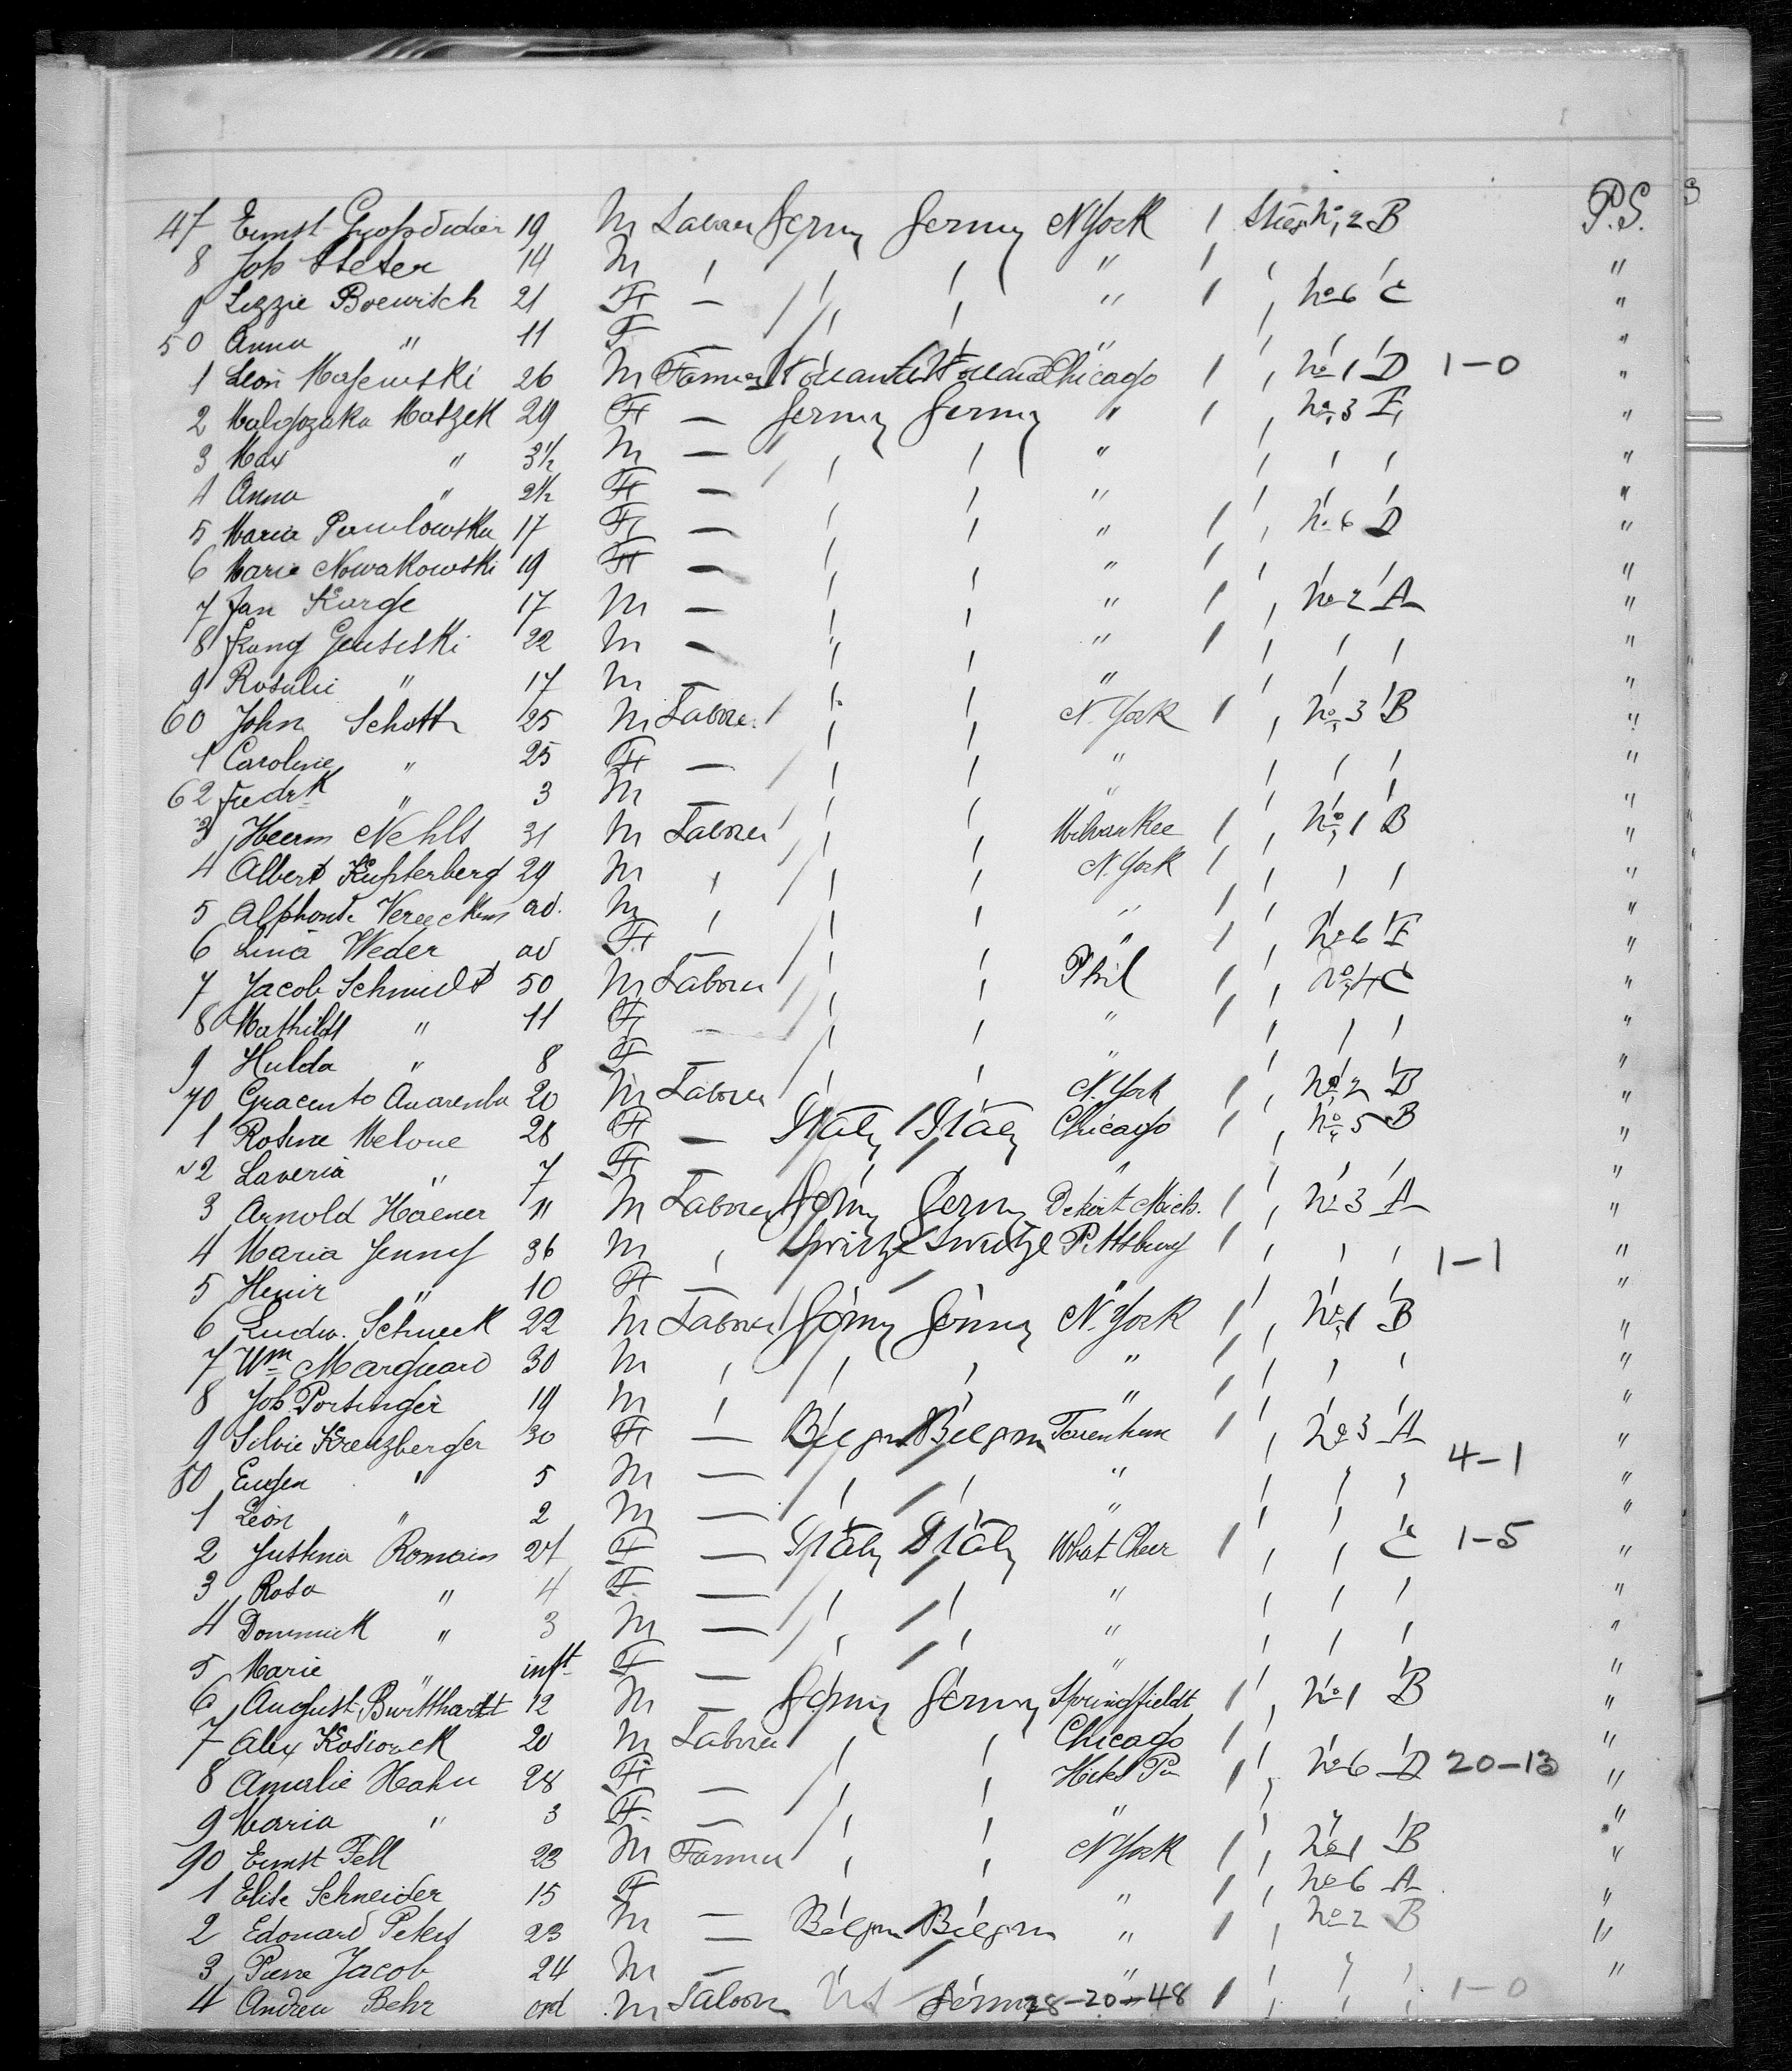 47 Ernst Grossdidier 19 M Laborer Germy Germy N York 1 Steer No 2 B P.S.
8 Jos Steter 14 M " " " " 1 " "
9 Lizzie Boewisch 21 F — " " " 1 " No 6 C "
50 Anna " 11 F — " " " "
1 Leon Majewski 26 M Farmer Chicago 1 " No 1 D 1-0 "
2 Malgozaka Matzek 29 F — Germy Germy " 1 " No 3 E "
3 Max " 3½ M — " " " " " " "
4 Anna " 2½ F — " " " "
5 Maria Pawlowska 17 F — " " " 1 " No 6 D "
6 Marie Nowakowski 19 F — " " " 1 "
7 Jan Karge 17 M — " " " 1 " No 2 A "
8 Franz 22 M — " " " 1 " " " "
9 Rosalie " 17 M — " " " "
60 John Schott 25 M Laborer " " N. York 1 " No 3 B "
1 Caroline " 25 F — " " " " " " "
62 Fredrk " 3 M — " " " "
3 Herm Nehls 31 M Laborer " " Milwaukee 1 " No 1 B "
4 Albert Kupferberg 29 M " " " N. York 1 " " " "
5 Alphonse Vereecken ad. M " " " " 1 "
6 Lina Weder ad F — " " " 1 " No 6 F "
7 Jacob Schmidt 50 M Laborer " " Phil 1 " No 4 C "
8 Mathilde " 11 F — " " " 1 " " " "
9 Hulda " 8 F — " " " "
70 Gracento Auarenba 20 M Laborer N. York 1 " No 2 B "
1 Rosina Melone 28 F — Italy Italy Chicago 1 " No 5 B "
2 Laveria " 7 F — " " " "
3 Arnold Haener 11 M Laborer Germy Germy Detroit Mich. 1 " No 3 A "
4 Maria Jenny 36 M " Switze Switze Pittsburg 1 " " " 1-1 "
5 Henir " 10 F — " "
6 Ludw. Schneck 22 M Laborer Germy Germy N. York 1 " No 1 B "
7 Wm Marquard 30 M " " " " 1 " " " "
8 Jos. Portinger 19 M " " " " 1 "
9 Silvie Kreuzberger 30 F — Belgm Belgm 1 " No 3 A "
80 Eugen " 5 M — " " " " " " 4-1 "
1 Leon " 2 M — " "
2 Justina Romain 27 F — Italy Italy What Cheer 1 " " C 1-5 "
3 Rosa " 4 F — " " " " " " "
4 Dominick " 3 M — " " " " " " "
5 Marie " inft F — " "
6 August Burtthardt 12 M — Germy Germy Springfieldt 1 " No 1 B "
7 Alex Kosioreck 20 M Laborer " " Chicago 1 "
8 Amalie Hahn 28 F — " " Hicks Pa 1 " No 6 D 20-13 "
9 Maria " 3 F — " " " "
90 Ernst Fell 23 M Farmer " " N York 1 " No 1 B "
1 Elise Schneider 15 F — " 1 " No 6 A "
2 Edouard Peters 23 M — Belgm Belgm " 1 " No 2 B "
3 Pierre Jacob 24 M — " " " " "
4 Andrew Behr ad M Laborer US Germy 28-20-48 1 " " " 1-0